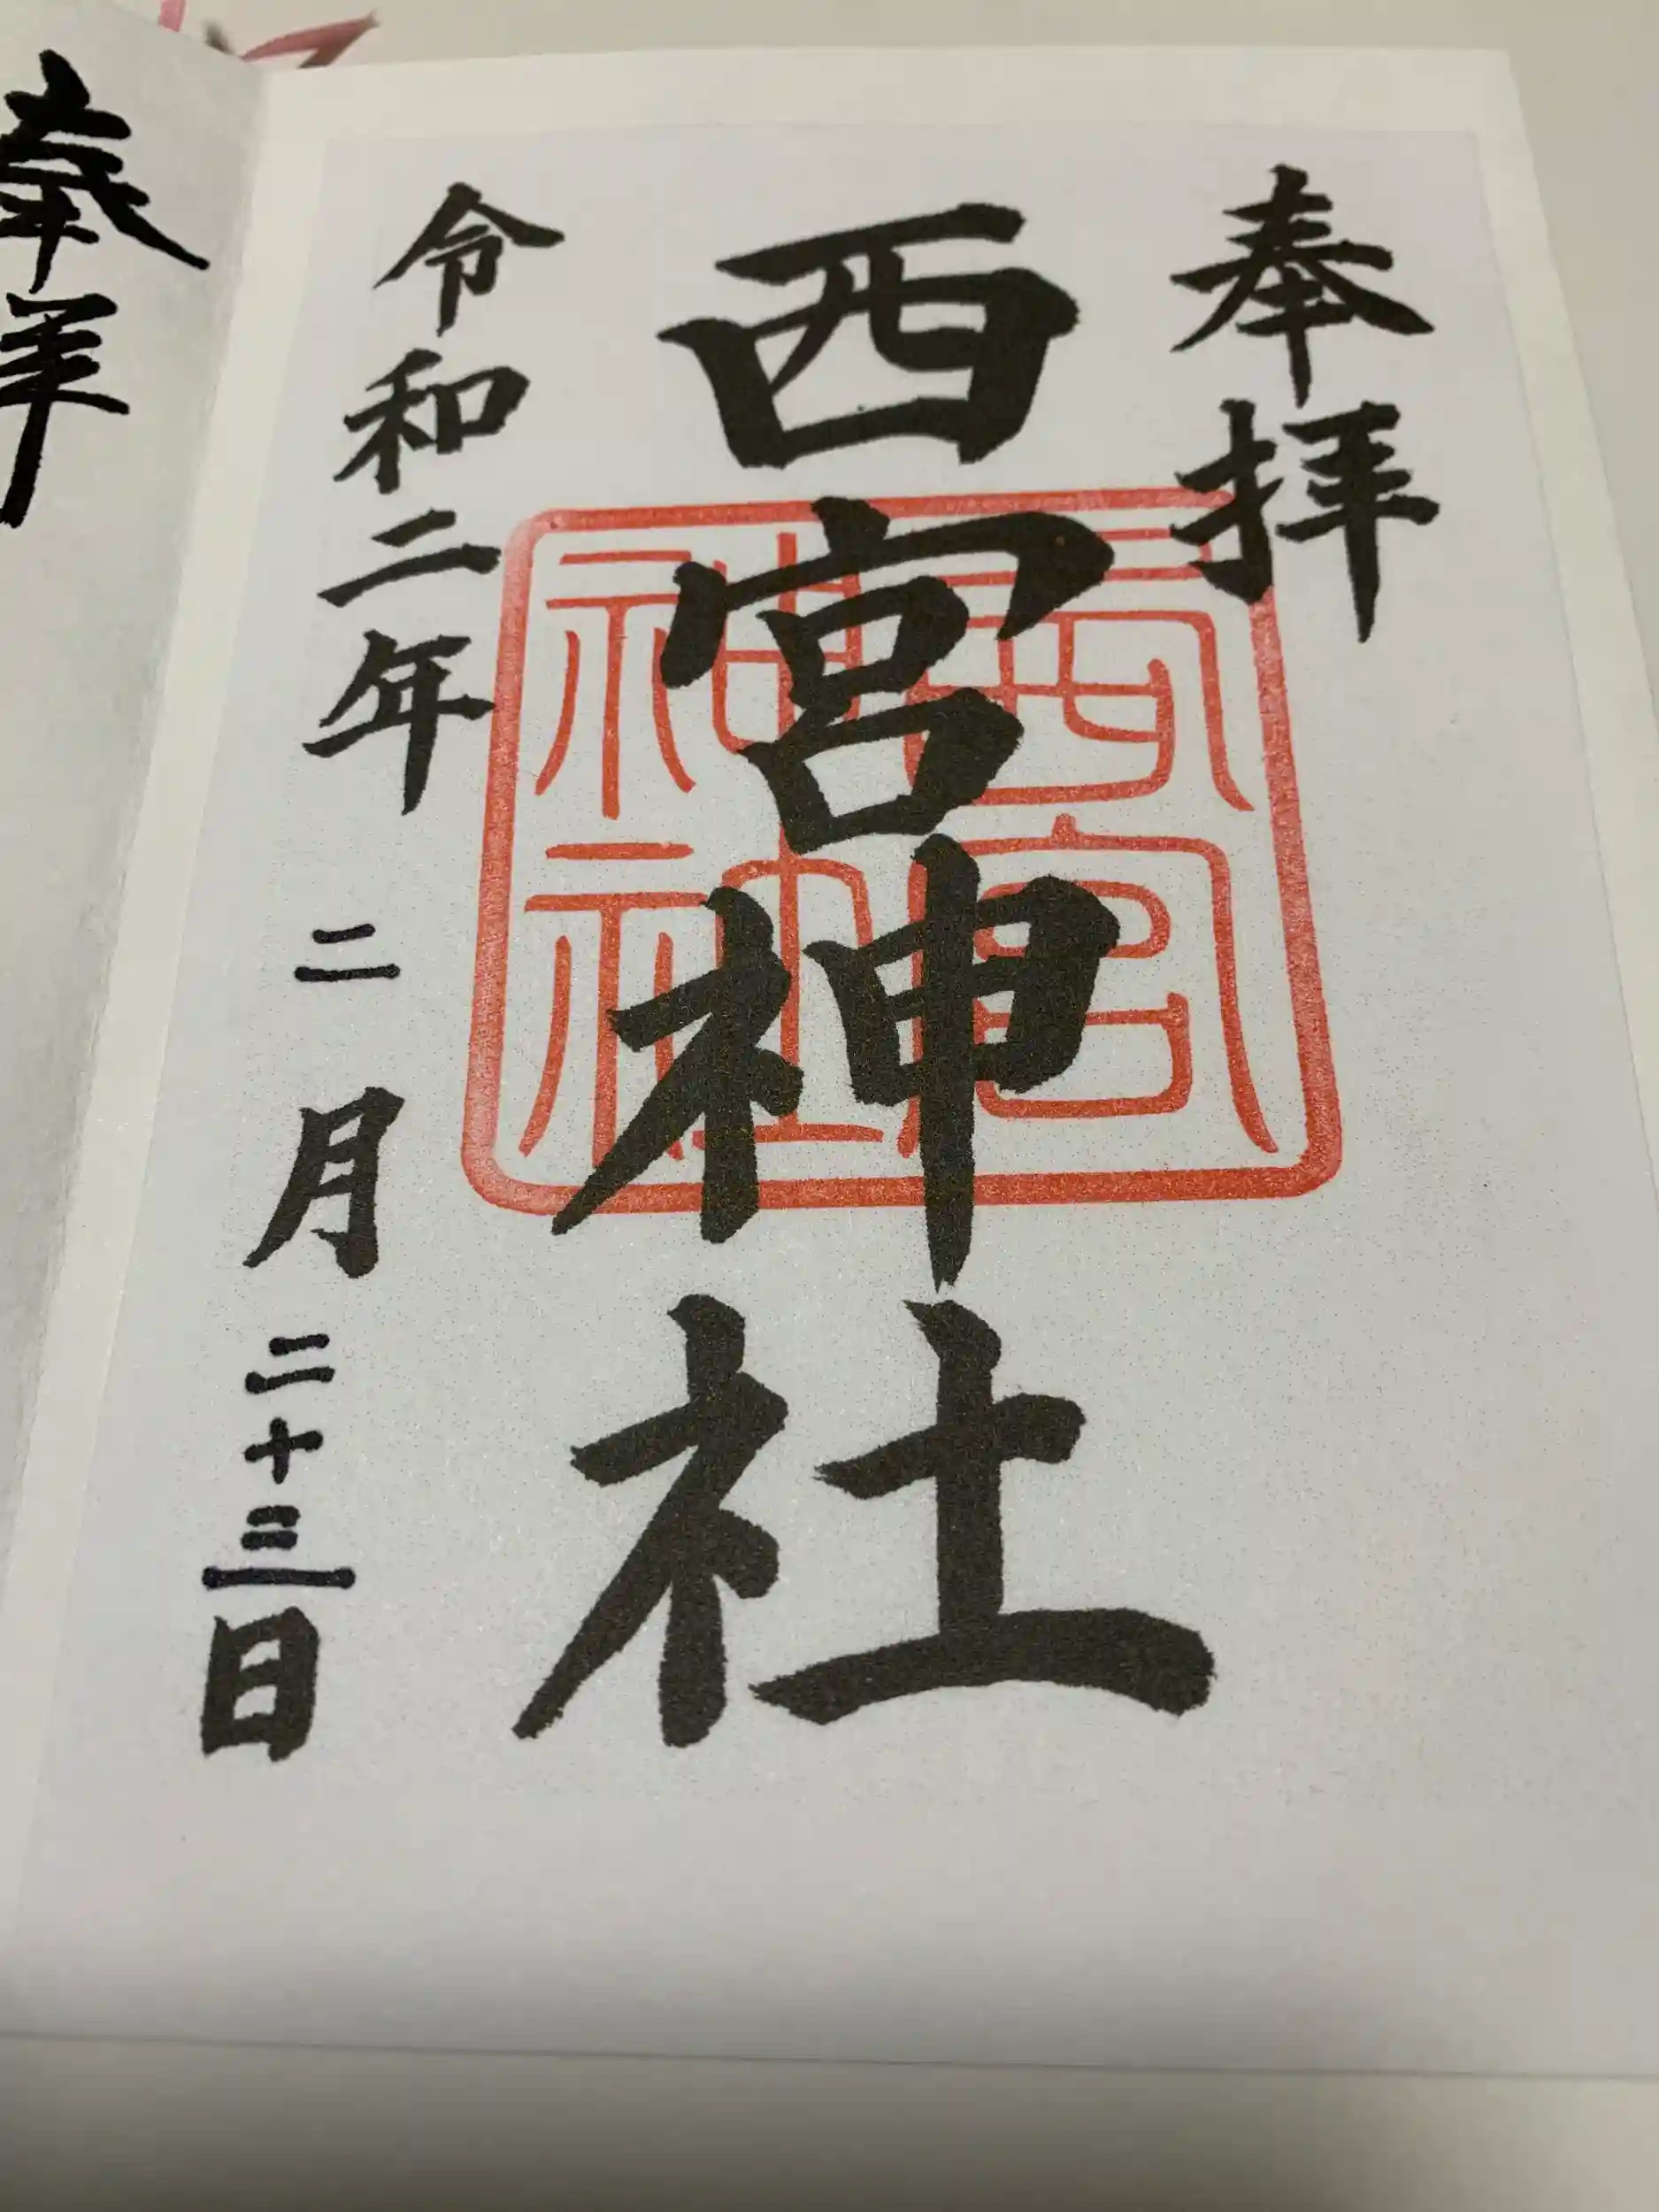 奉拝
西宮神社
西宮
神社
令和二年 二月二十三日
奉拝